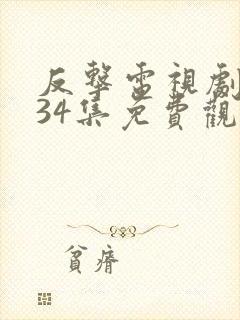 反擊電視劇
34集免費觀
貧瘠